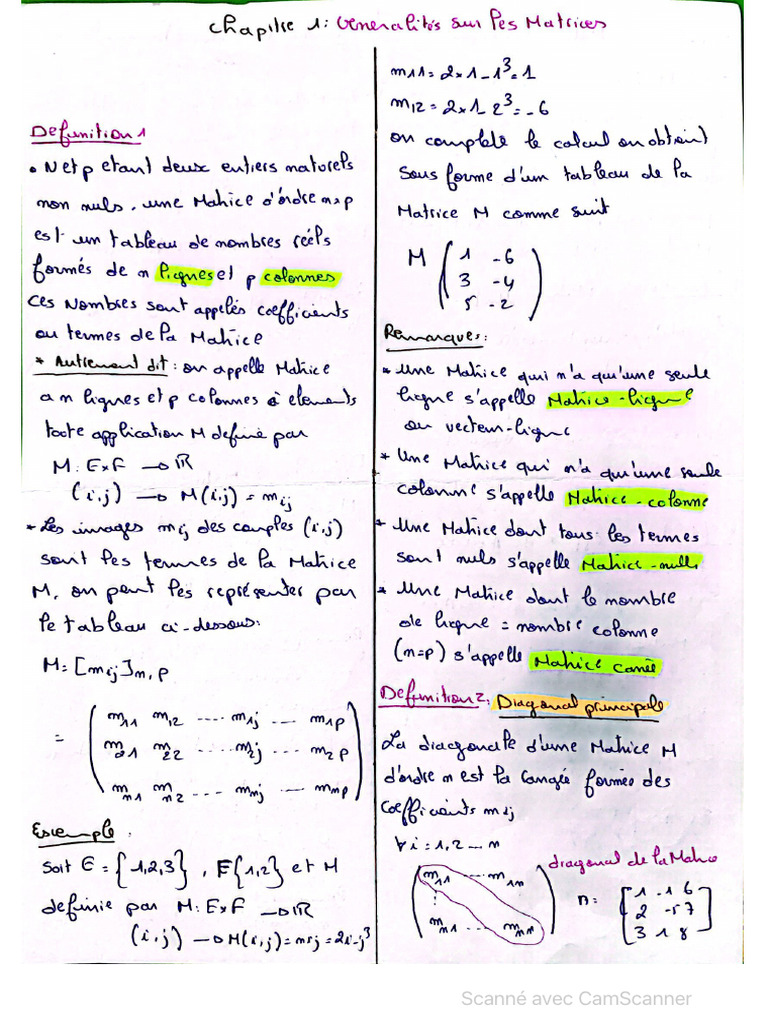 Chapitre 1: Généralités sur les Matrices
Definition 1
• N et p etant deux entiers naturels
non nuls, une Matrice d'ordre n×p
est un tableau de nombres réels
formés de n lignes et p colonnes
Ces Nombres sont appelés coefficients
ou termes de la Matrice
* Autrement dit : on appelle Matrice
a n lignes et p colonnes à elements
toute application M definie par
M: E×F → IR
(i,j) → M(i,j) = mij
* Les images mij des couples (i,j)
sont les termes de la Matrice
M, on peut les représenter par
le tableau ci-dessous:
M = [mij]n,p
= ( m11 m12 .... m1j .... m1p
m21 m22 .... m2j .... m2p
mn1 mn2 .... mnj .... mnp )
Exemple :
Soit E = {1,2,3} , F{1,2} et M
definie par M: E×F → IR
(i,j) → M(i,j) = mij = 2i-j³
m11 = 2×1-1³ = 1
m12 = 2×1-2³ = -6
on complete le calcul on obtient
sous forme d'un tableau de la
Matrice M comme suit
M ( 1 -6
3 -4
5 -2 )
Remarques:
* Une Matrice qui n'a qu'une seule
ligne s'appelle Matrice-ligne
ou vecteur-ligne
* Une Matrice qui n'a qu'une seule
colonne s'appelle Matrice-colonne
* Une Matrice dont tous les termes
sont nuls s'appelle Matrice-nulle
* Une Matrice dont le nombre
de ligne = nombre colonne
(n=p) s'appelle Matrice carrée
Definition 2: Diagonal principale
La diagonale d'une Matrice M
d'ordre n est la rangée formées des
coefficients mij
∀ i = 1,2 ... n
diagonal de la Matrice
( m11 ... m1n
mn1 .... mnn )
[ 1 -1 6
2 -5 7
3 1 8 ]
Scanné avec CamScanner